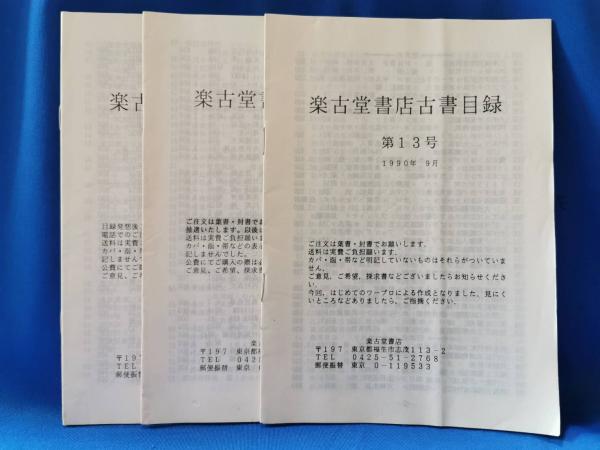 楽古
目録発想後
電話でのご
送料は実費
カバ・函・
記しません
公費にてご
ご意見、ご
〒197
TEL
郵便振替
楽古堂書
ご注文は葉書・封書でお
抽選いたします。以後
送料は実費ご負担願いま
カバ・函・帯などの表
記しませんでした。
公費にてご購入の際は
ご意見、ご希望、探求書
楽
〒197 東京都福
TEL 042
郵便振替 東京 0
楽古堂書店古書目録
第13号
1990年 9月
ご注文は葉書・封書でお願いします。
送料は実費ご負担願います。
カバ・函・帯など明記していないものはそれらがついていま
せん。
ご意見、ご希望、探求書などございましたらお知らせくださ
い。
今回、はじめてのワープロによる作成となりました。見にく
いところなどありましたら、ご指摘ください。
楽古堂書店
〒197 東京都福生市志茂113-2
TEL 0425-51-2768
郵便振替 東京 0-119533